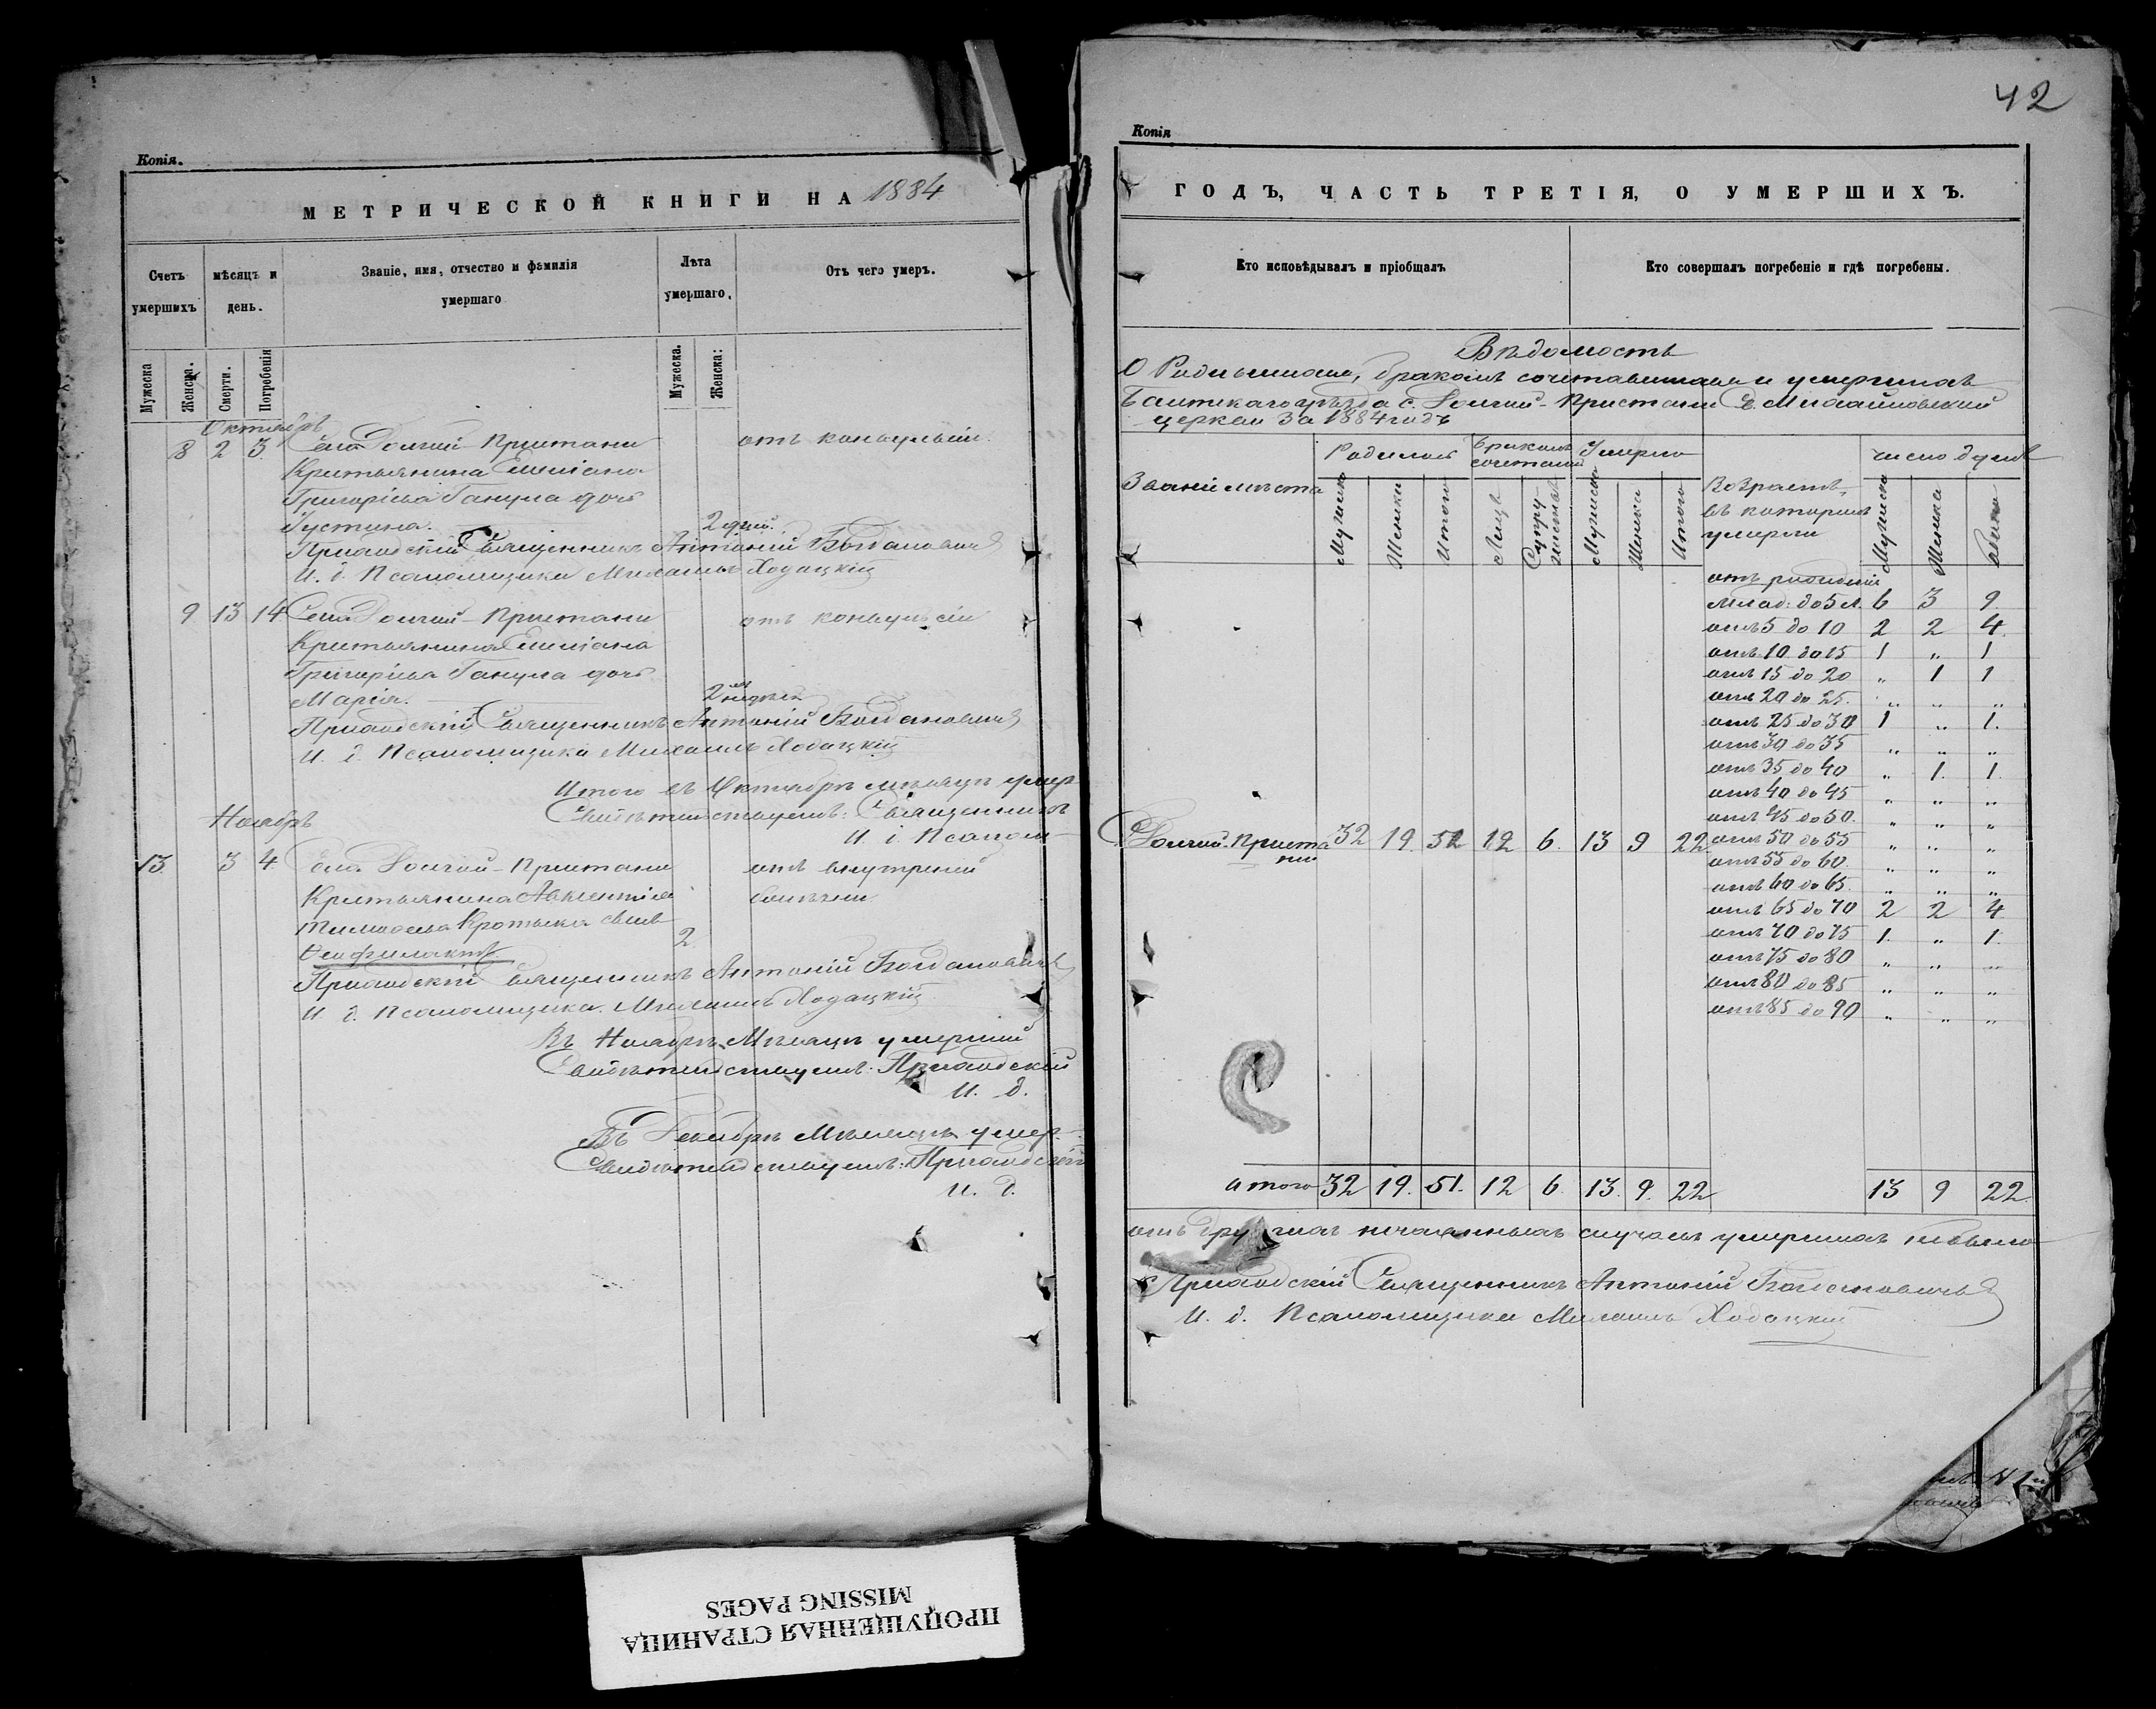 Копія.
МЕТРИЧЕСКОЙ КНИГИ НА 1884
Счетъ умершихъ
мѣсяцъ и день.
Званіе, имя, отчество и фамилія умершаго
Лѣта умершаго.
Отъ чего умеръ.
Мужеска
Женска.
Смерти.
Погребенія
Мужеска.
Женска:
Октябрь
8 2 3. Села Долгой-Пристани отъ конвульсіи.
Крестьянина Емиліана
Григоріева Ганула дочь
Іустина. 2 дней.
Приходскій Священникъ Антоній Богдановичъ
И. д. Псаломщика Михаилъ Ходацкій
9 13 14 Села Долгой-Пристани отъ конвульсіи
Крестьянина Емиліана
Григоріева Ганула дочь
Марія. 2 недѣл.
Приходскій Священникъ Антоній Богдановичъ
И. д. Псаломщика Михаилъ Ходацкій
Итого въ Октябрѣ мѣсяцѣ умер
Свидѣтельствуемъ: Священникъ
И. д. Псалом-
Ноябрь
13. 3 4 Села Долгой-Пристани отъ внутреней
Крестьянина Авксентія болѣзни.
Тимоѳеева Кротыка сынъ
Ѳеофилактъ 2.
Приходскій Священникъ Антоній Богдановичъ
И. д. Псаломщика Михаилъ Ходацкій
Въ Ноябрѣ Мѣсяцѣ умершій
Свидѣтельствуемъ: Приходскій
И. д.
Въ Декабрѣ Мѣсяцѣ умер-
Свидѣтельствуемъ: Приходскій
И. д.
42
Копія
ГОДЪ, ЧАСТЬ ТРЕТІЯ, О УМЕРШИХЪ.
Кто исповѣдывалъ и пріобщалъ
Кто совершалъ погребеніе и гдѣ погребены.
Вѣдомость
О Родившихся, бракомъ сочетавшихся и умершихъ
Балтскаго уѣзда с. Долгой-Пристани С. Михайловской
церкви За 1884 годъ
Званіе мѣста
Родилось
Бракомъ сочетаній
Умерло
Возрастъ, въ которомъ умерли
число душъ
Мужеска
Женска
Итого
Лицъ
Супружествъ
Мужеска
Женска
Итого
Мужеска
Женска
Обоихъ
отъ рожденія
млад: до 5 л. 6 3 9
отъ 5 до 10 2 2 4.
отъ 10 до 15 1 „ 1
отъ 15 до 20 „ 1 1
отъ 20 до 25. „ „ „
отъ 25 до 30 1 „ 1.
отъ 30 до 35 „ „ „
отъ 35 до 40 „ 1. 1.
отъ 40 до 45 „ „ „
отъ 45 до 50. „ „ „
Долгой-Пристани 32 19. 51 12 6. 13 9 22 отъ 50 до 55 „ „ „
отъ 55 до 60. „ „ „
отъ 60 до 65. „ „ „
отъ 65 до 70 2 2 4
отъ 70 до 75 1. „ 1.
отъ 75 до 80 „ „ „
отъ 80 до 85 „ „ „
отъ 85 до 90 „ „ „
итого 32 19. 51. 12 6. 13. 9. 22 13 9 22.
отъ другихъ нечаянныхъ случаевъ умершихъ небыло
Приходскій Священникъ Антоній Богдановичъ
И. д. Псаломщика Михаилъ Ходацкій
ПРОПУЩЕННАЯ СТРАНИЦА
MISSING PAGES